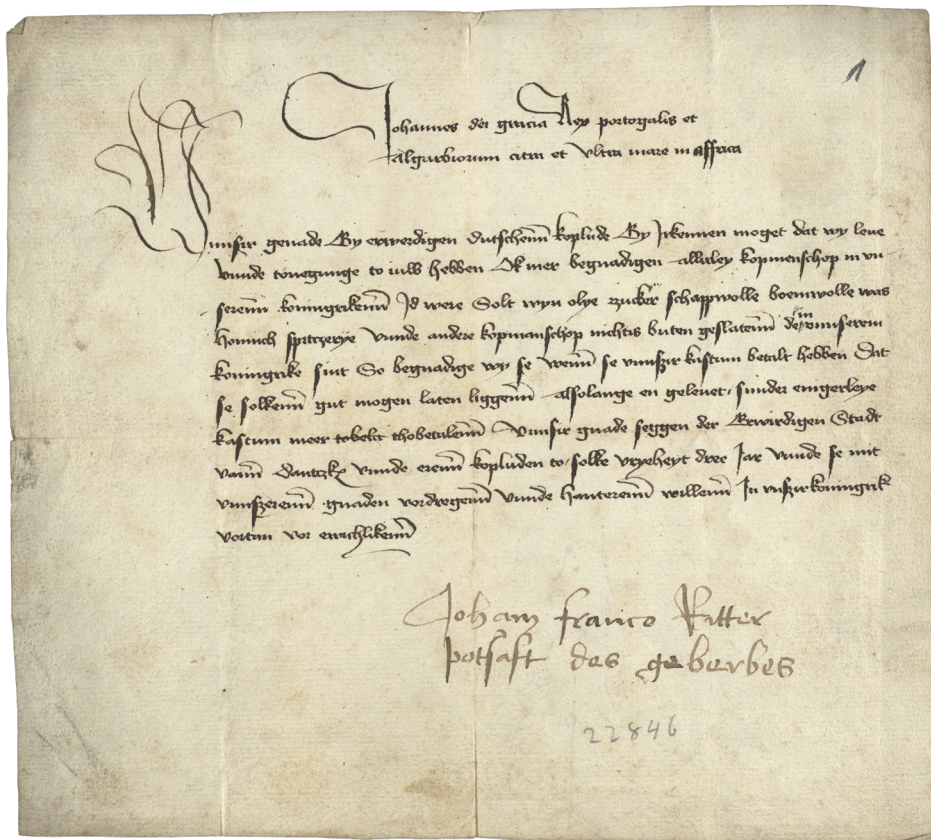 1
Johannes dei gracia Rex portogalis et
algarbiorum citra et Vltra mare in affrica
Vnnser genade Gy erwerdigen dutschenn koplude Gy Irkennen moget dat wy leue
vnnde toneigunge to iuw hebben Ok mer begnadigen allerley kopmenschop in vn
serenn koningrikenn Id were Solt wyn olye zucker schappwolle boemwolle was
honnich spitzerye Vnnde andere kopmanschop nichtis buten geslatenn de in vnnserem
koningrike sint So begnadige wy se wenn se vnnser kustum betalt hebben Dat
se solkenn gut mogen laten liggenn alsolange en geleuet sunder enigerleye
kustum meer thobetalenn Vnnser gnade seggen der Erwirdigen Stadt
vann Dantzk vnnde erenn kopluden to solke vryeheyt dree Jar vnnde se mit
vnnszerenn gnaden vordregenn vnnde hanterenn willenn In vnszir koningrik
vortan vor
Joham franco Ritter
potsaft des geberbes
22846